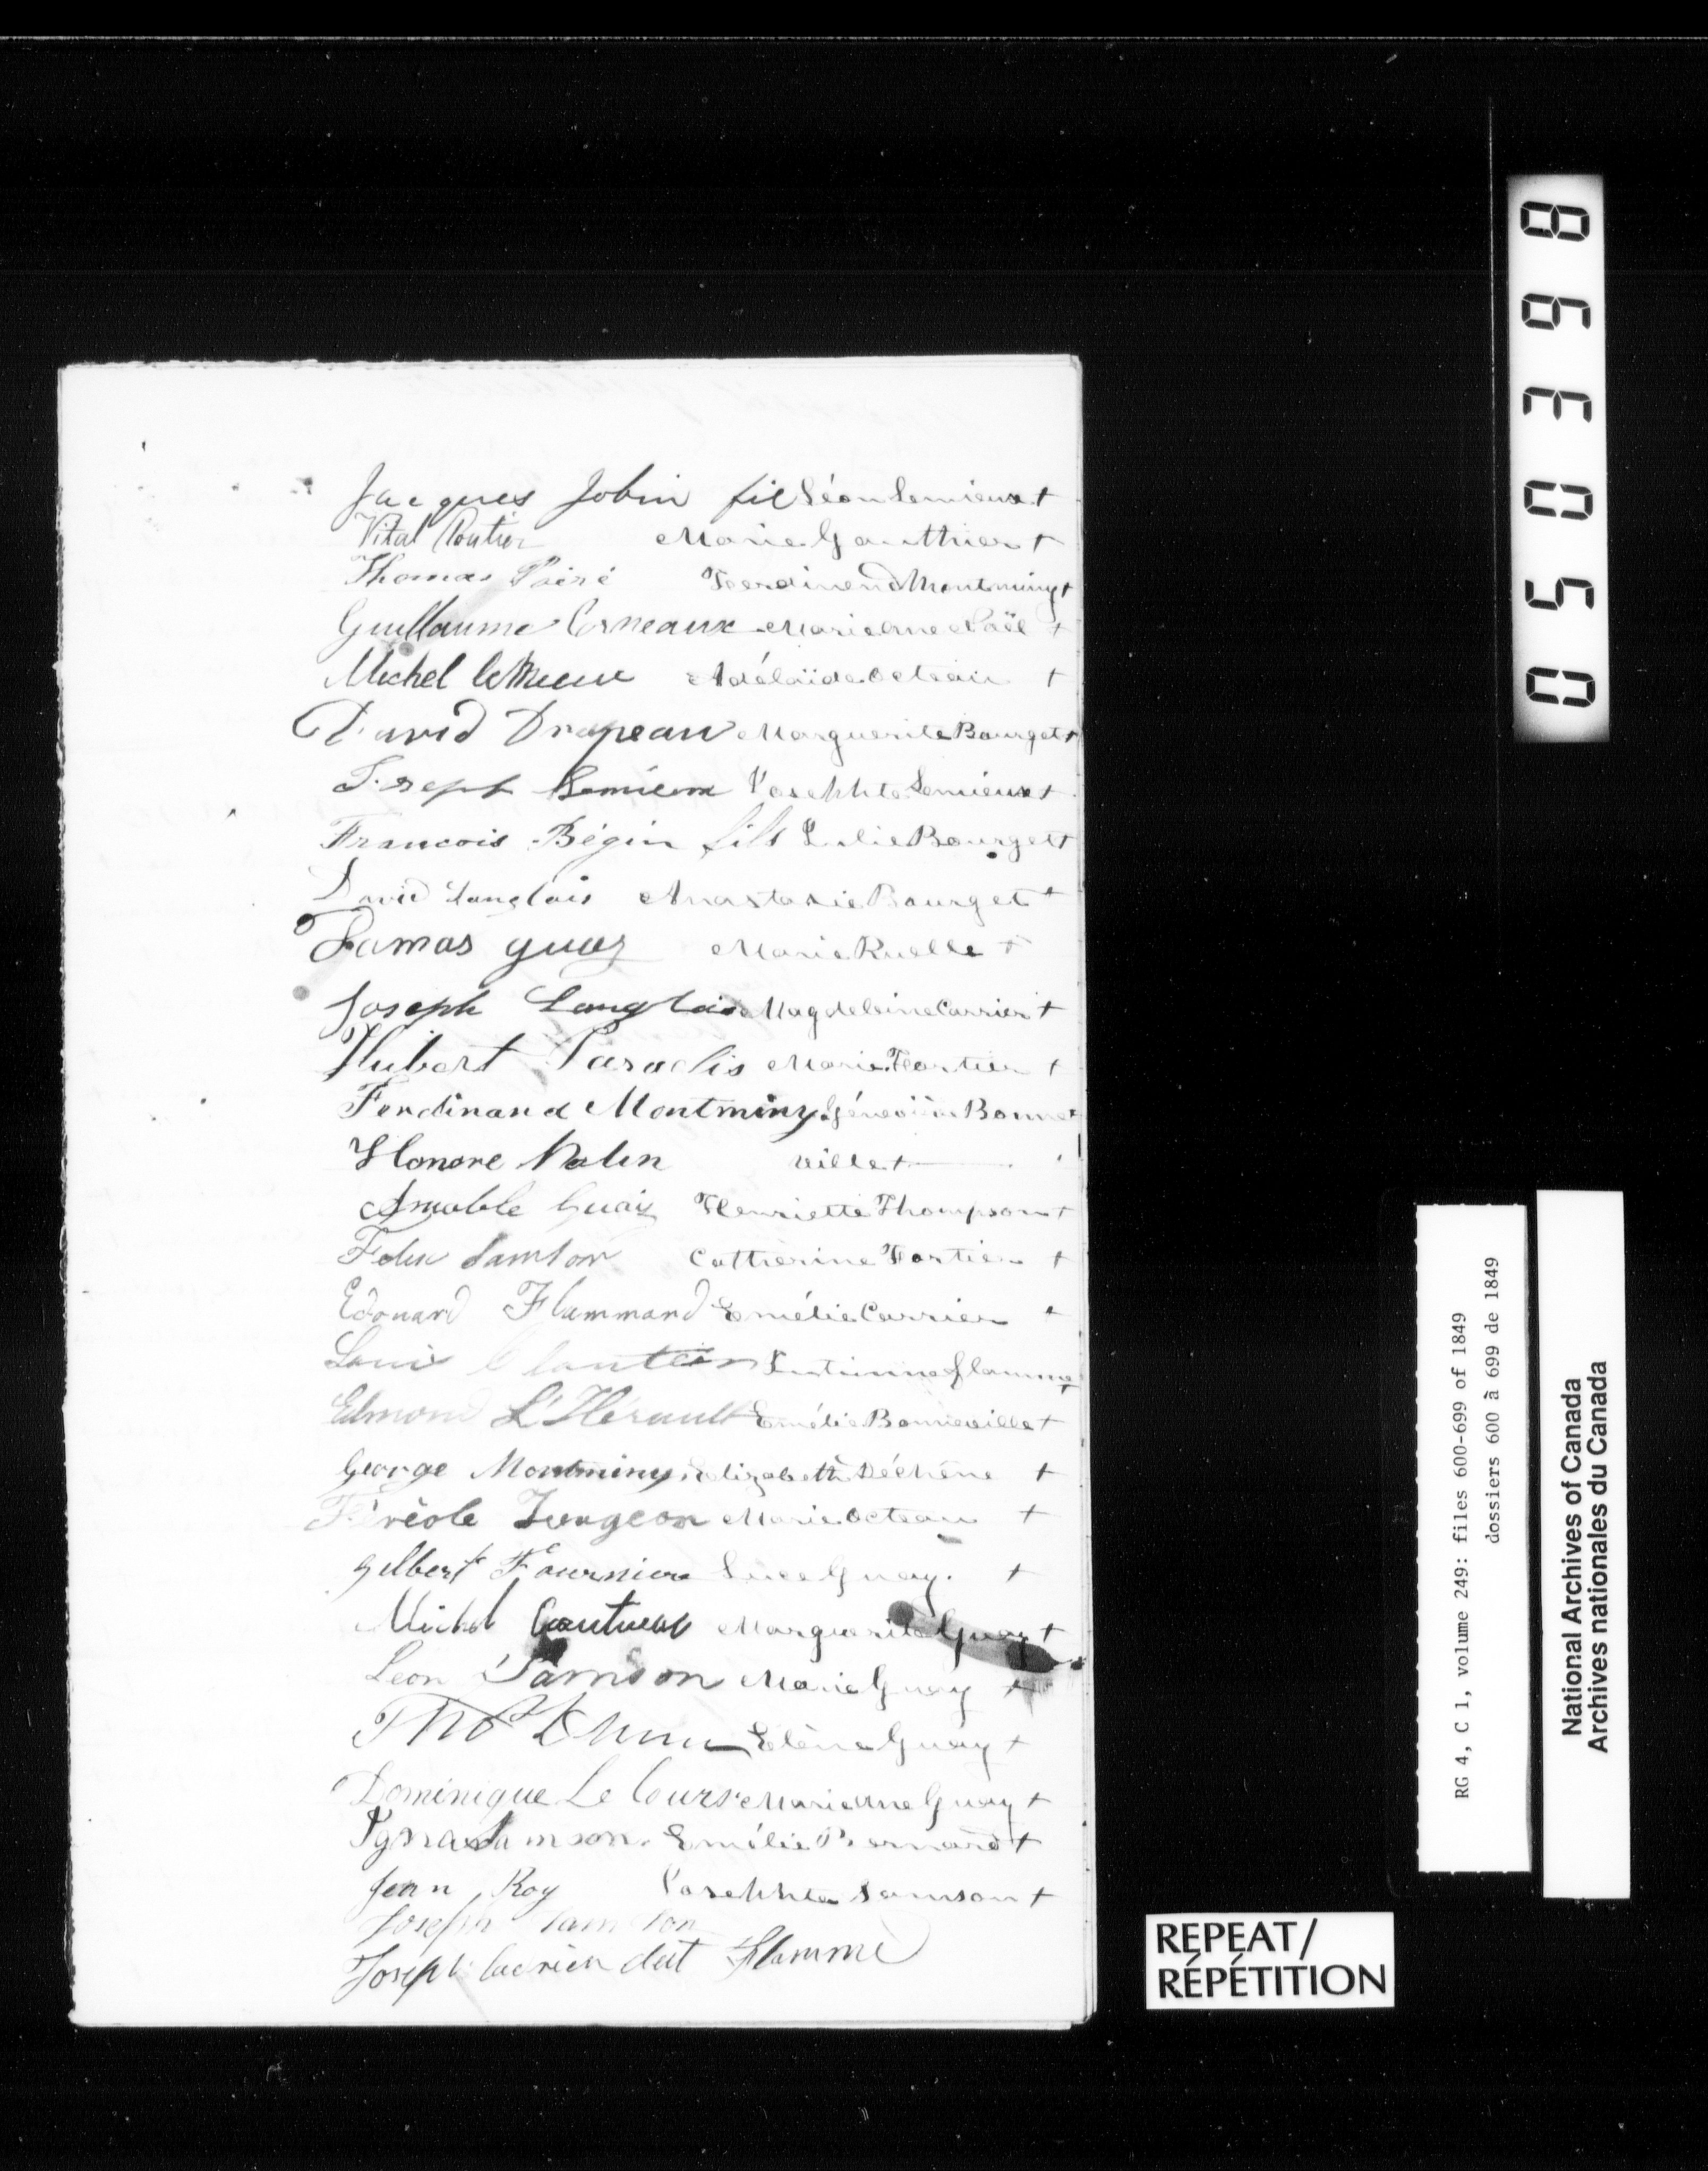 Jacques Jobin fil Léon Lemieux +
Vital Routier Marie Gauthier +
Thomas Paire Ferdinend Montminy +
Guillaume Corneaux Marie Anne Noël +
Michel Adélaïde Octeau +
David Drapeau Marguerite Bourget +
Joseph Lemieux Josephte Lemieux +
Francois Bégin fils Julie Bourget +
David Langlais Anastasie Bourget +
Tamas guay Marie Ruelle +
Joseph Langlais Magdeleine Carrier +
Hubert Paradis Marie Fortier +
Ferdinand Montminy Généviève Bonne
Honore Nolin ville +
Amable Guay Henriette Thompson +
Felix Samson Catherine Fortier +
Edouard Flammand Emélie Carrier +
Louis Flamme
Edmond L'Hérault Emélie Bonneville +
George Montminy Elizabeth Déchêne +
Féréole Turgeon Marie Octeau +
Gilbert Fournier Luce Guay. +
Michel Marguerite Guay +
Leon Samson Marie Guay +
Thos Elène Guay +
Dominique Le Cours Marie Anne Guay +
Ignace Samson. Emélie Bernard +
Jean Roy Josephte Samson +
Joseph Samson
Joseph dit Flamme
050398
RG 4, C 1, volume 249: files 600-699 of 1849
dossiers 600 à 699 de 1849
National Archives of Canada
Archives nationales du Canada
REPEAT/
RÉPÉTITION